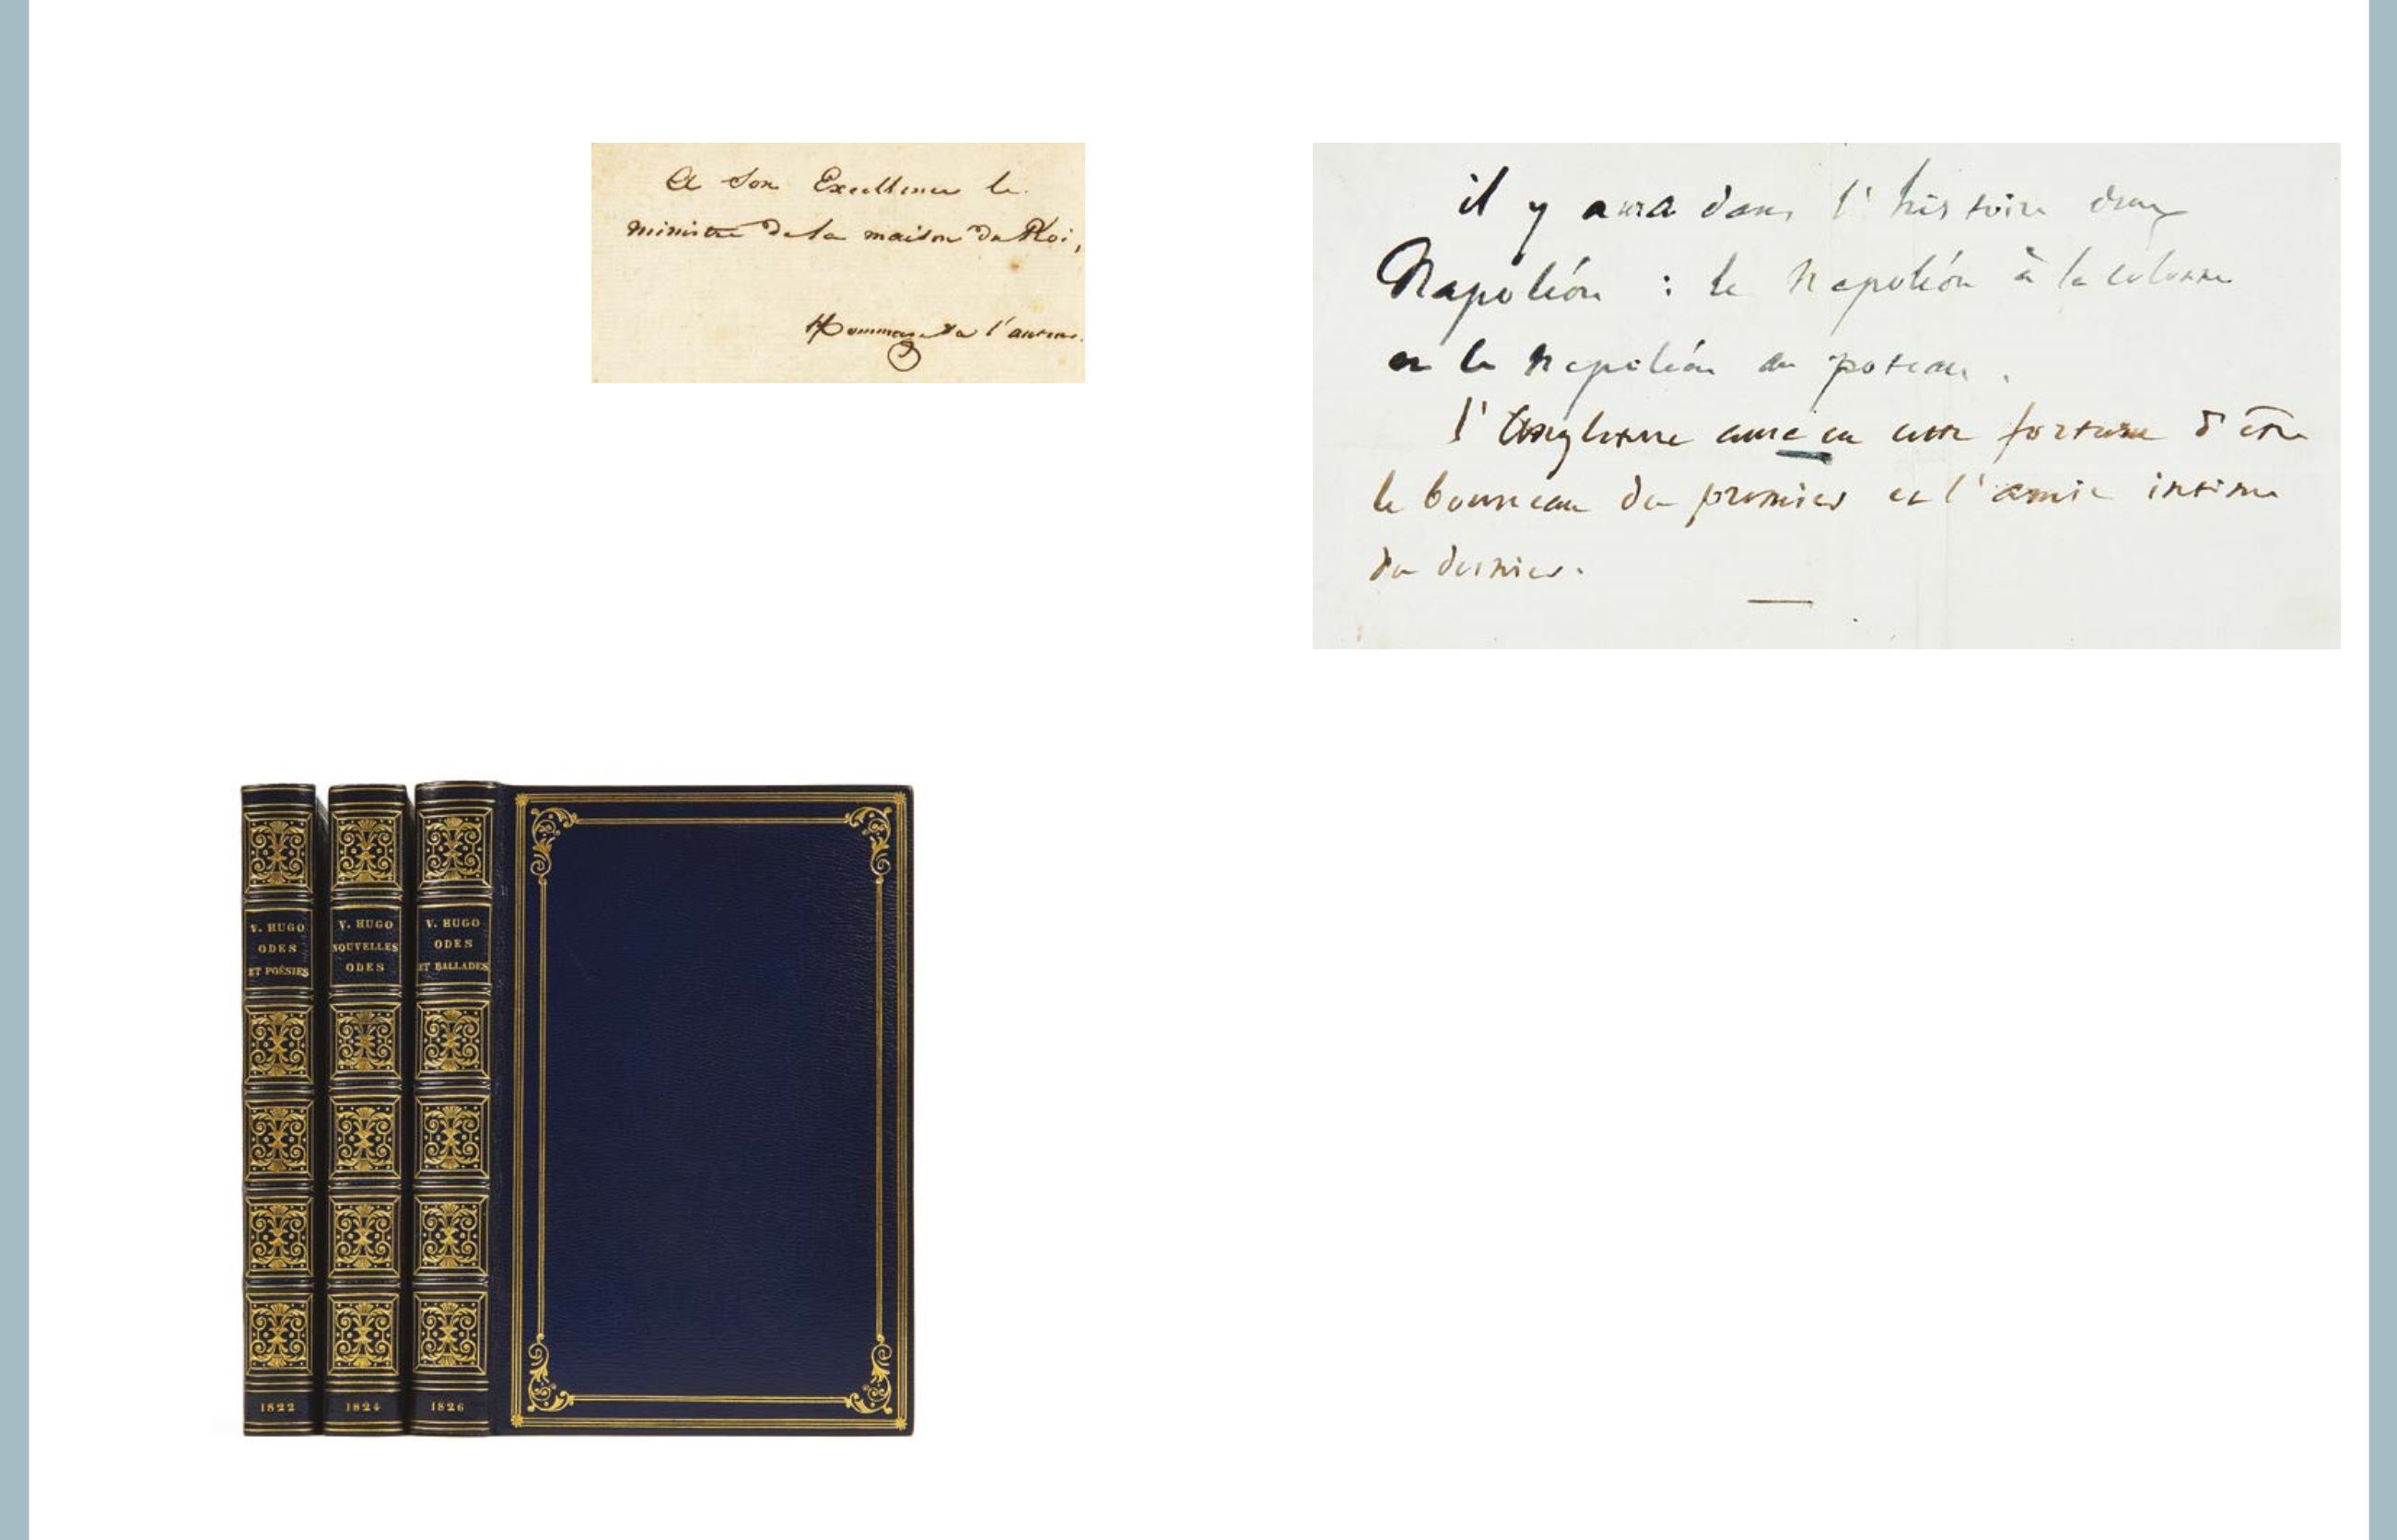 A Son Excellence le
ministre de la maison du Roi,
Hommage de l'auteur.
il y aura dans l'histoire deux
Napoléon : le Napoléon à la colonne
et le Napoléon au poteau.
l'Angleterre aura eu cette fortune d'être
le bourreau du premier et l'amie intime
du dernier.
V. HUGO
ODES
ET POÉSIES
1822
V. HUGO
NOUVELLES
ODES
1824
V. HUGO
ODES
ET BALLADES
1826